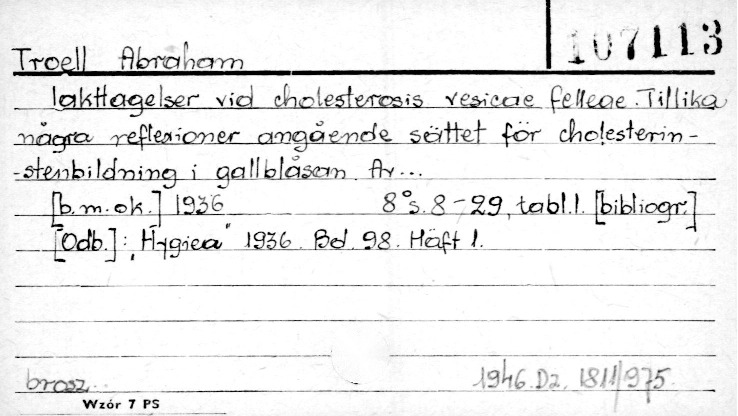 107113
Troell Abraham
Iakttagelser vid cholesterosis vesicae felleae. Tillika
några reflexioner angående sättet för cholesterin-
-stenbildning i gallblåsan. Av...
[b.m.ok.] 1936 8° s. 8-29, tabl. 1. [bibliogr.]
[Odb.]: "Hygiea" 1936. Bd. 98. Häft 1.
brosz. 1946. Dz. 1811/975.
Wzór 7 PS